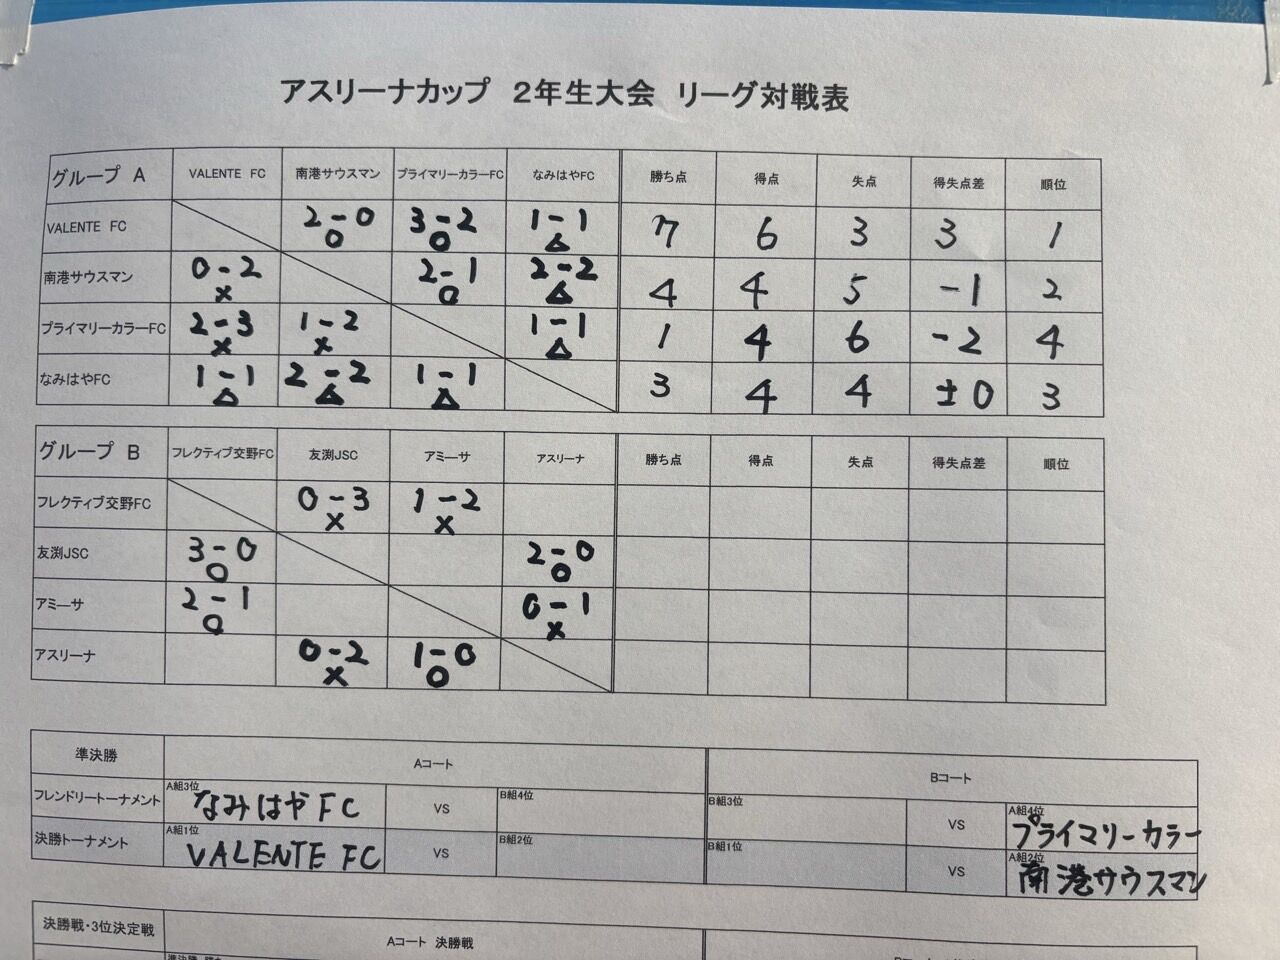 アスリーナカップ 2年生大会 リーグ対戦表
グループ A VALENTE FC 南港サウスマン プライマリーカラーFC なみはやFC 勝ち点 得点 失点 得失点差 順位
VALENTE FC 2-0 ○ 3-2 ○ 1-1 △ 7 6 3 3 1
南港サウスマン 0-2 × 2-1 ○ 2-2 △ 4 4 5 -1 2
プライマリーカラーFC 2-3 × 1-2 × 1-1 △ 1 4 6 -2 4
なみはやFC 1-1 △ 2-2 △ 1-1 △ 3 4 4 ±0 3
グループ B フレクティブ交野FC 友渕JSC アミーサ アスリーナ 勝ち点 得点 失点 得失点差 順位
フレクティブ交野FC 0-3 × 1-2 ×
友渕JSC 3-0 ○ 2-0 ○
アミーサ 2-1 ○ 0-1 ×
アスリーナ 0-2 × 1-0 ○
準決勝 Aコート Bコート
フレンドリートーナメント A組3位 なみはやFC VS B組4位 B組3位 VS A組4位 プライマリーカラー
決勝トーナメント A組1位 VALENTE FC VS B組2位 B組1位 VS A組2位 南港サウスマン
決勝戦・3位決定戦 Aコート 決勝戦